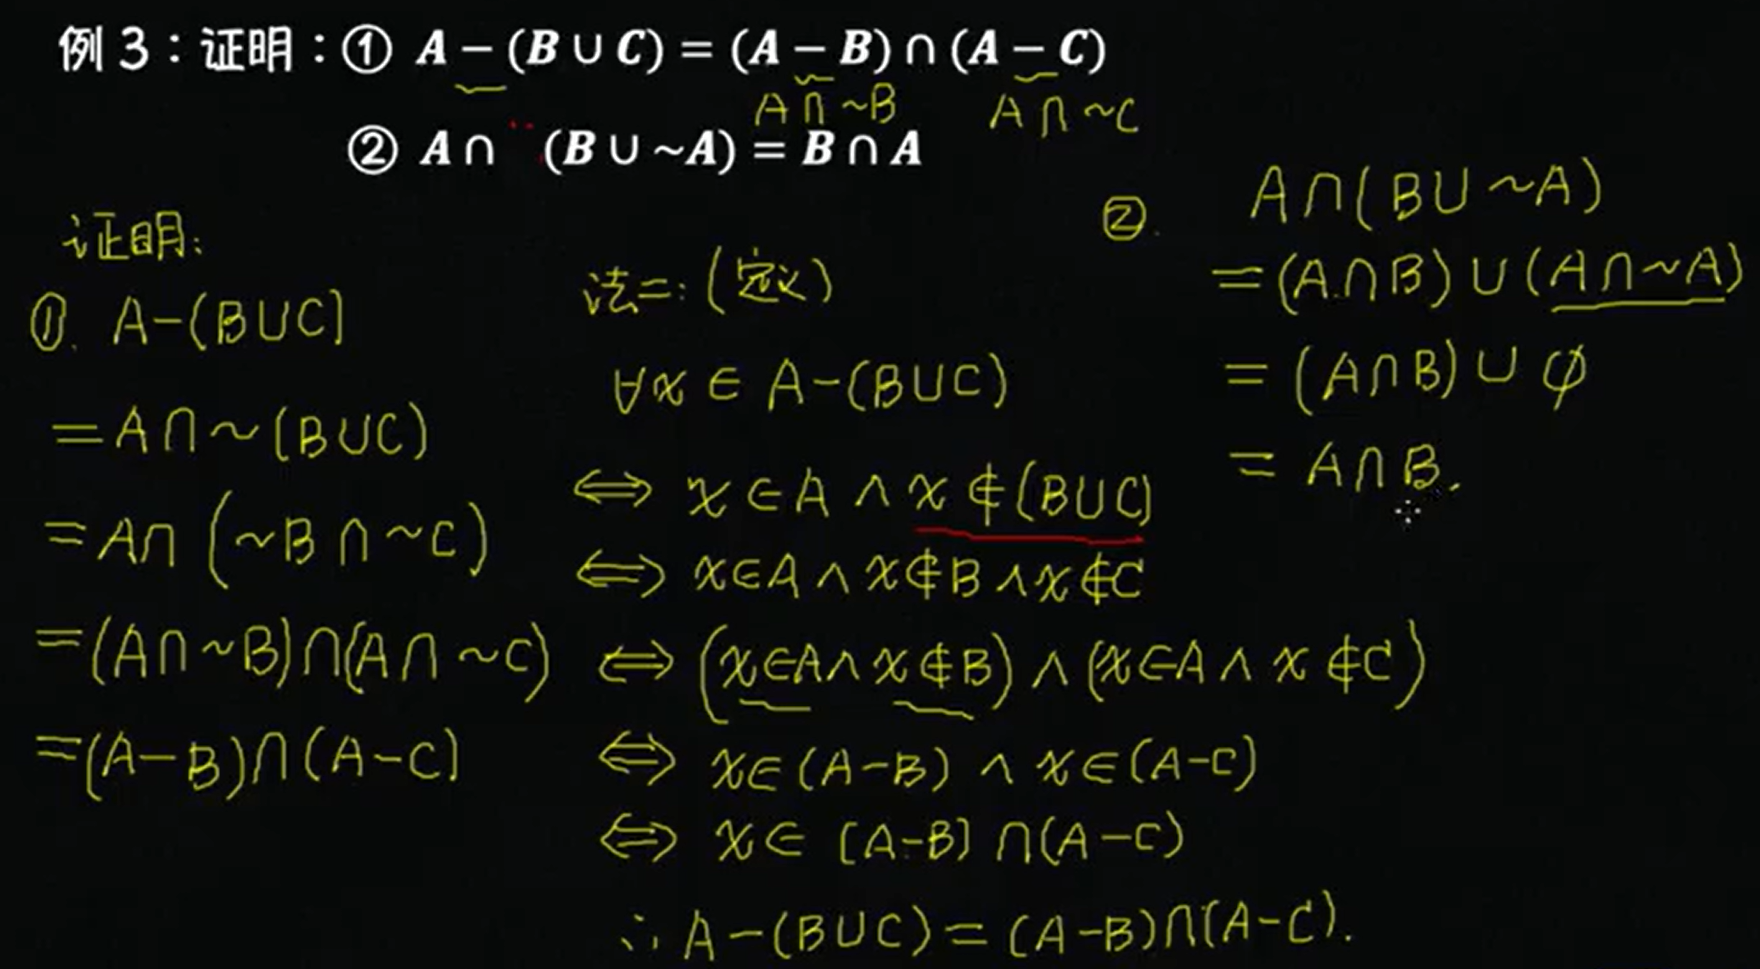 例3：证明：① A－(B∪C)＝(A－B)∩(A－C)
A∩~B A∩~C
② A∩ (B∪~A)＝B∩A
证明:
①. A-(B∪C)
=A∩~(B∪C)
=A∩(~B∩~C)
=(A∩~B)∩(A∩~C)
=(A-B)∩(A-C)
法二:(定义)
∀x∈A-(B∪C)
⇔ x∈A∧x∉(B∪C)
⇔ x∈A∧x∉B∧x∉C
⇔ (x∈A∧x∉B)∧(x∈A∧x∉C)
⇔ x∈(A-B)∧x∈(A-C)
⇔ x∈(A-B)∩(A-C)
∴A-(B∪C)=(A-B)∩(A-C).
②. A∩(B∪~A)
=(A∩B)∪(A∩~A)
=(A∩B)∪∅
=A∩B.